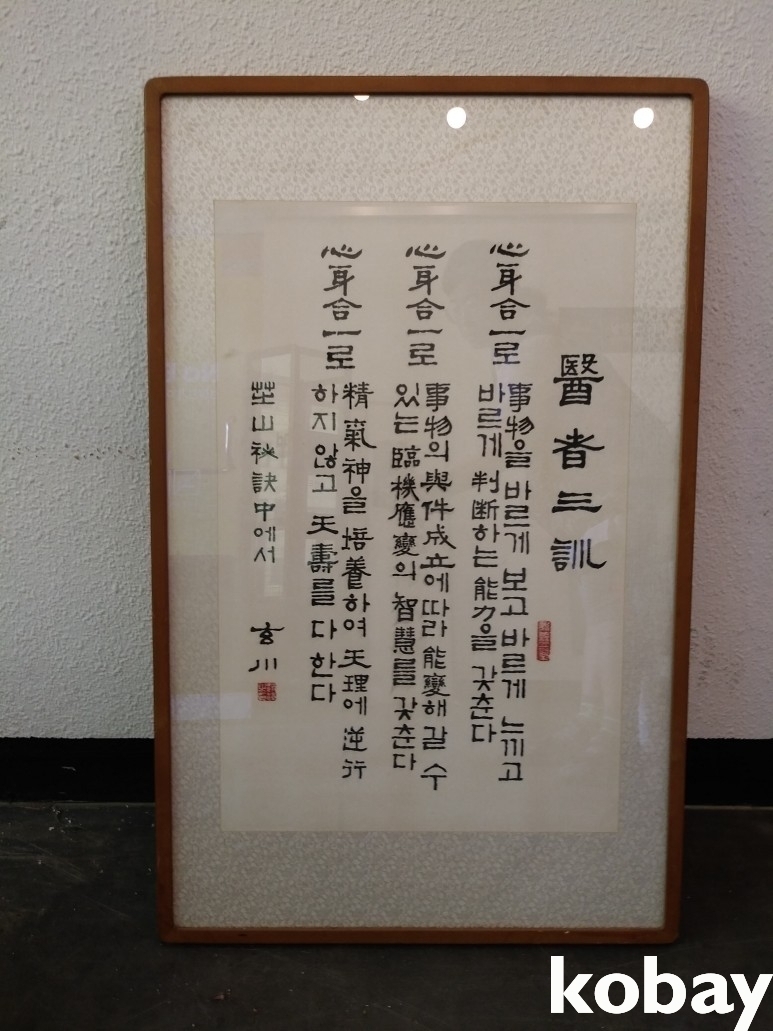 醫者三訓
心身合一로
事物을 바르게 보고 바르게 느끼고
바르게 判断하는 能力을 갖춘다
心身合一로
事物의 與件成立에 따라 能變해 갈 수
있는 臨機應變의 智慧를 갖춘다
心身合一로
精氣神을 培養하여 天理에 逆行
하지 않고 天壽를 다 한다
山秘訣中에서
玄川
kobay